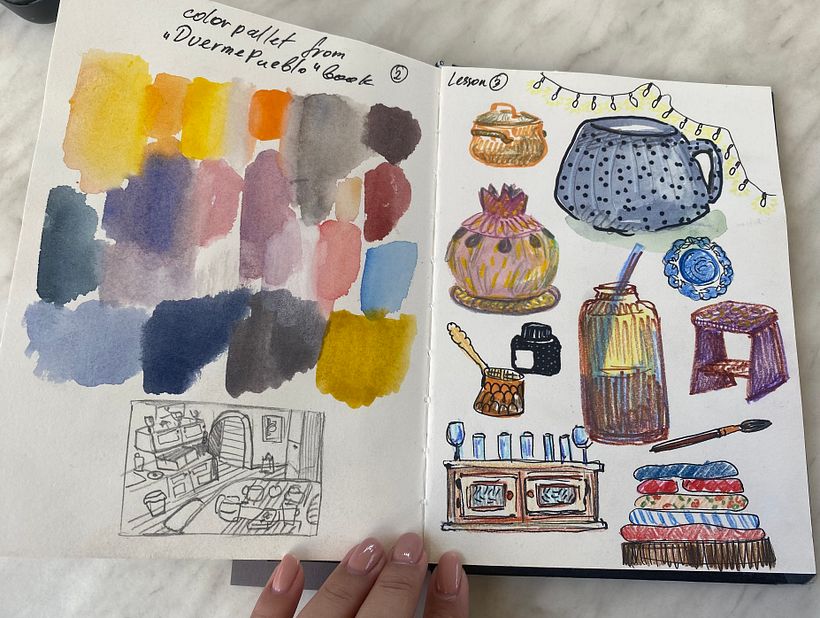 color pallet from
"DuermePueblo" book
2
Lesson 2